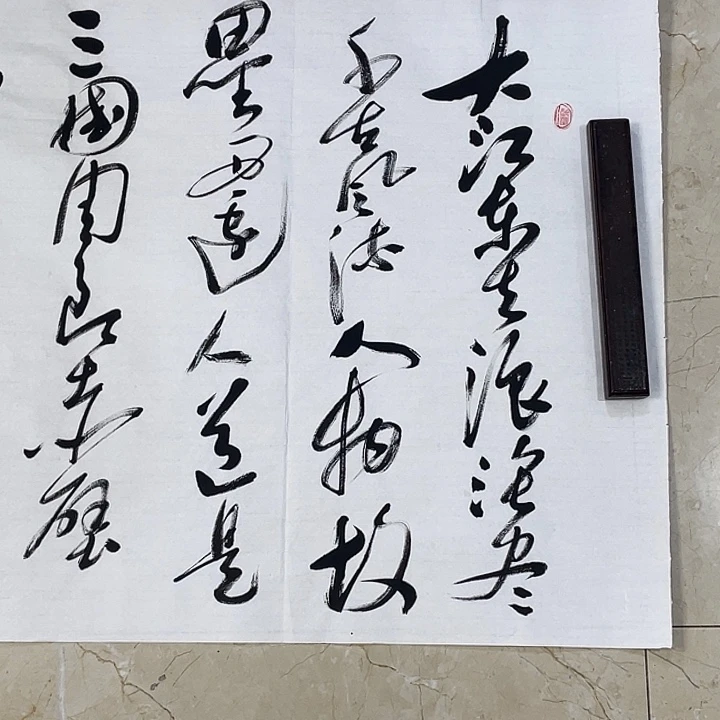 大江东去浪淘尽
千古风流人物故
壘西邊人道是
三國周郎赤壁